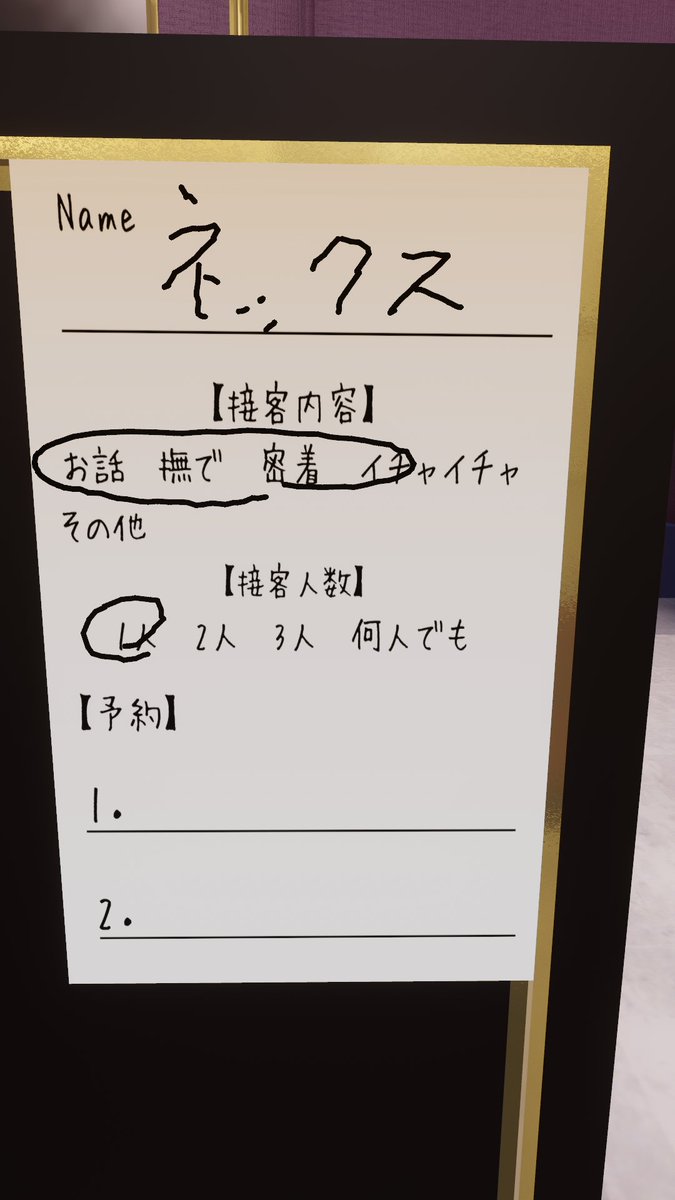 Name ネックス
【接客内容】
お話 撫で 密着 イチャイチャ
その他
【接客人数】
1人 2人 3人 何人でも
【予約】
1.
2.